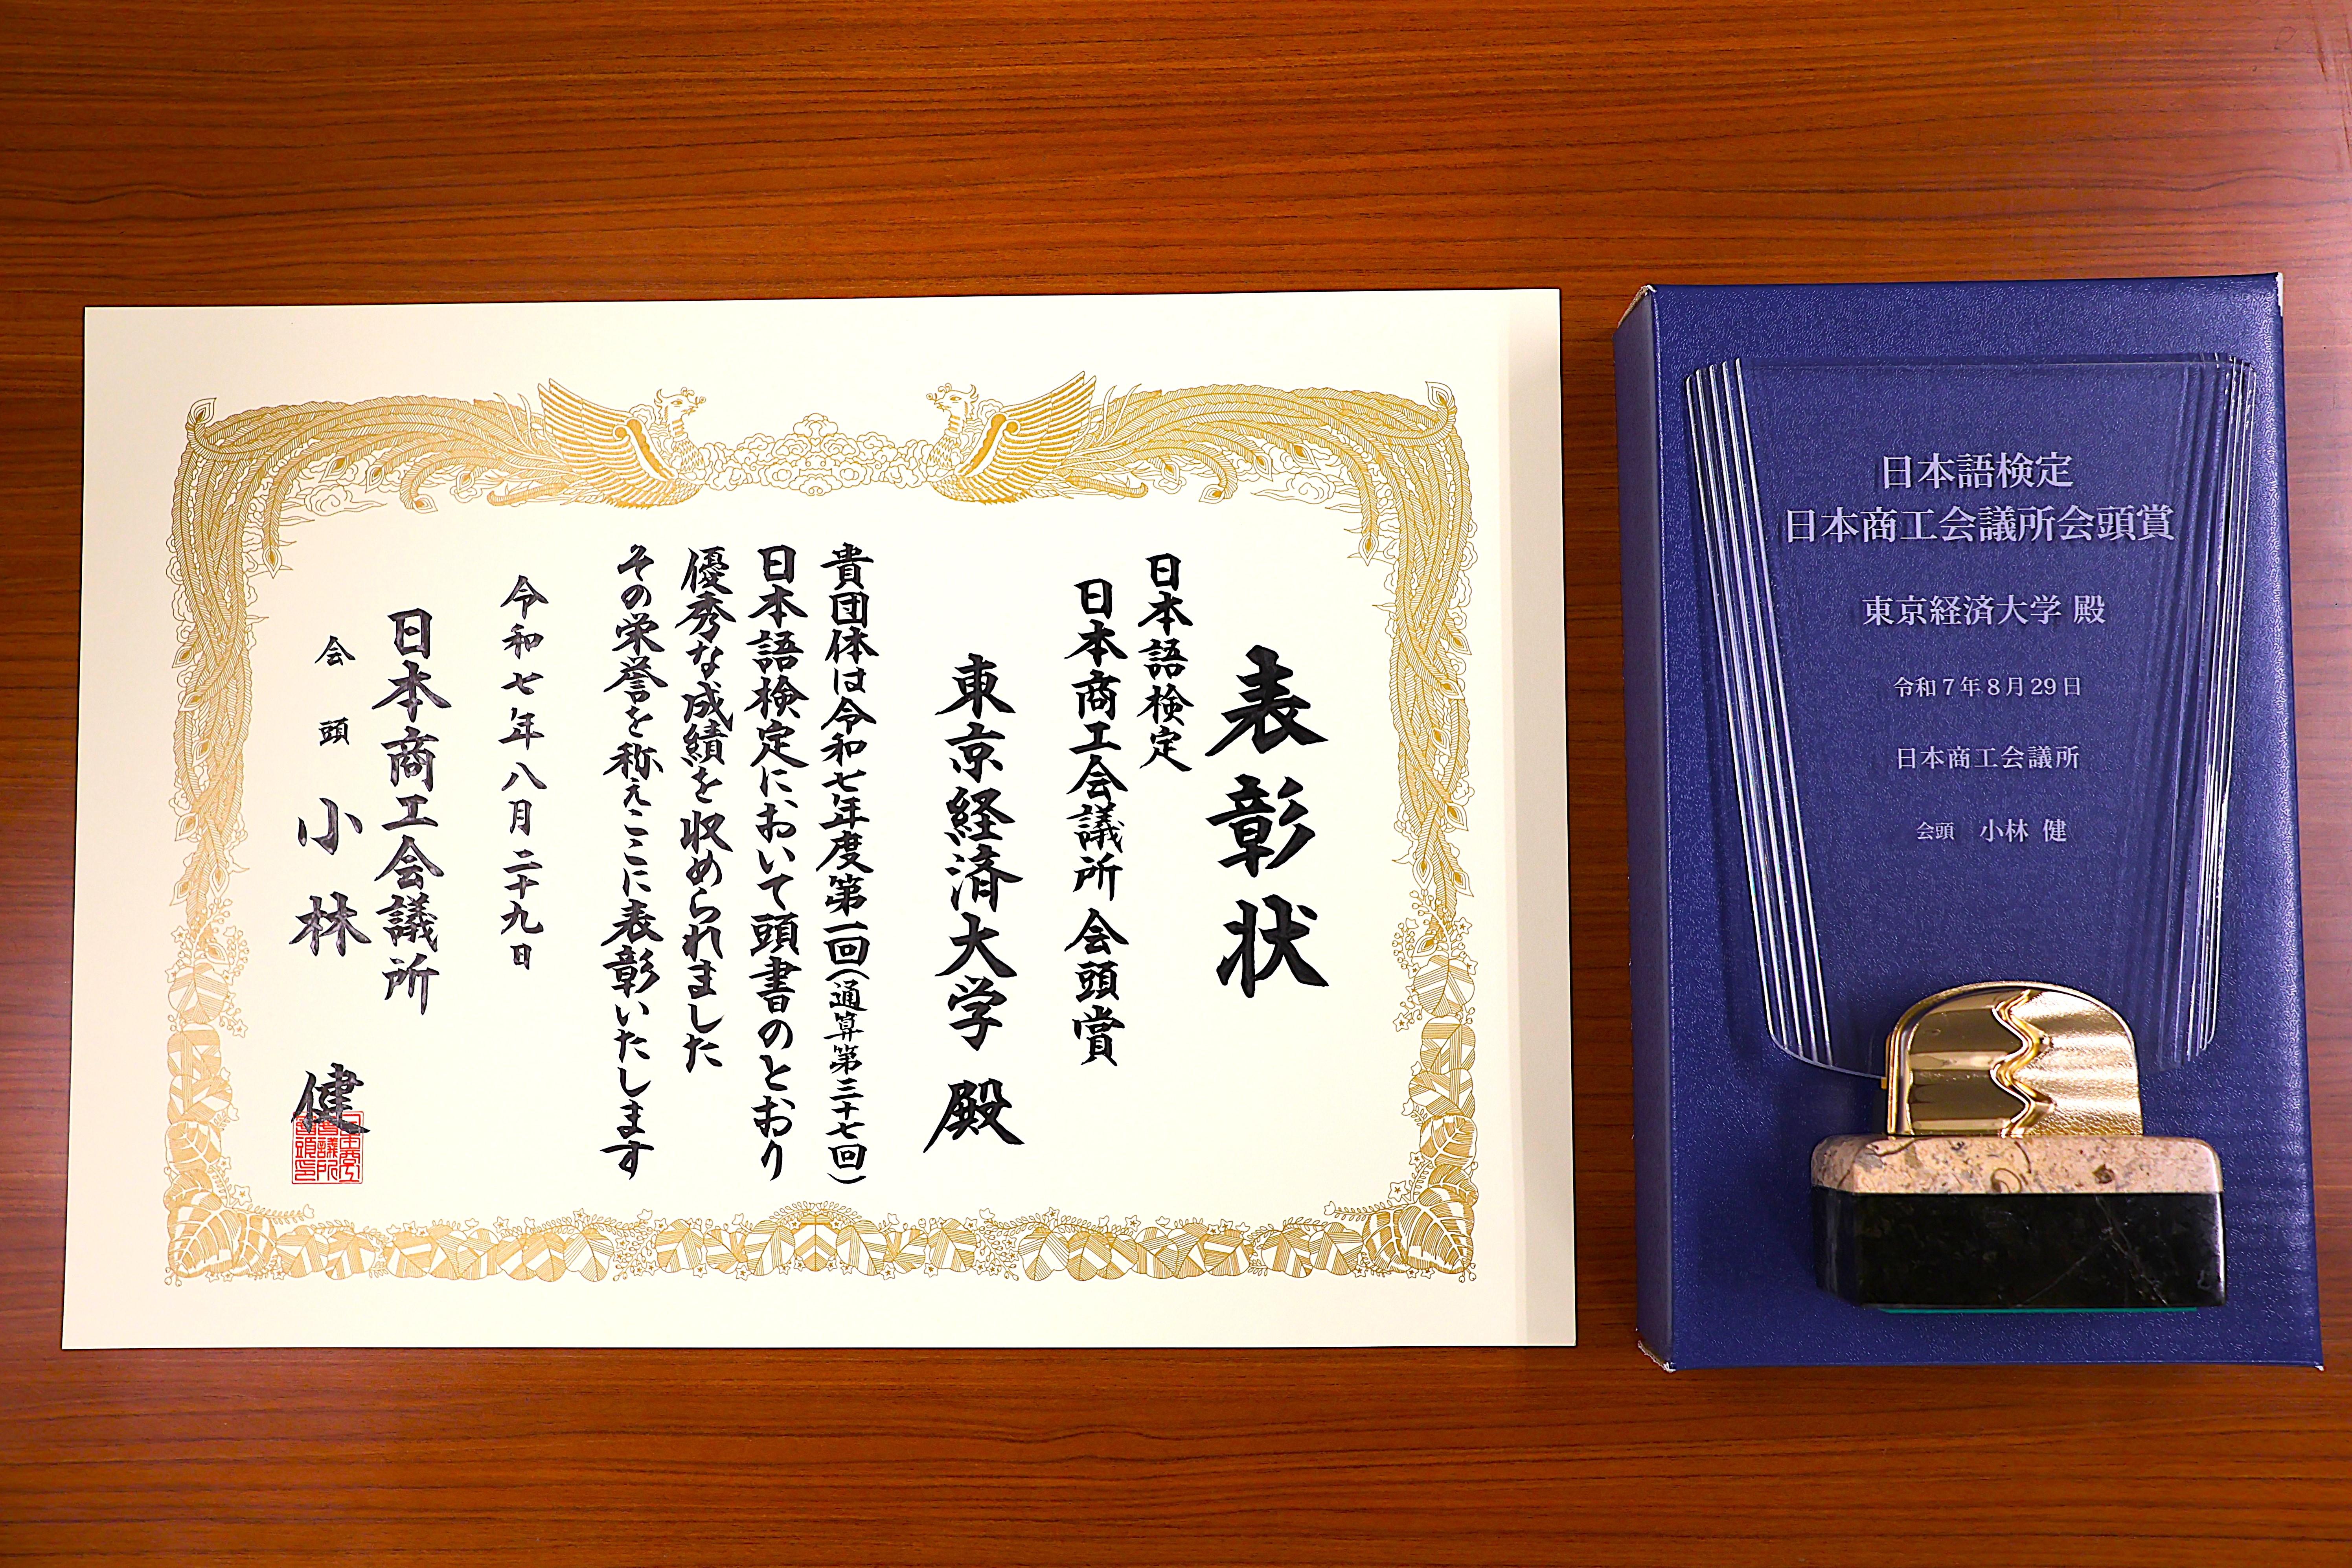 表彰状
日本語検定
日本商工会議所 会頭賞
東京経済大学 殿
貴団体は令和七年度第一回(通算第三十七回)
日本語検定において頭書のとおり
優秀な成績を収められました
その栄誉を称えここに表彰いたします
令和七年八月二十九日
日本商工会議所
会頭 小林 健
日本語検定
日本商工会議所会頭賞
東京経済大学 殿
令和7年8月29日
日本商工会議所
会頭 小林 健